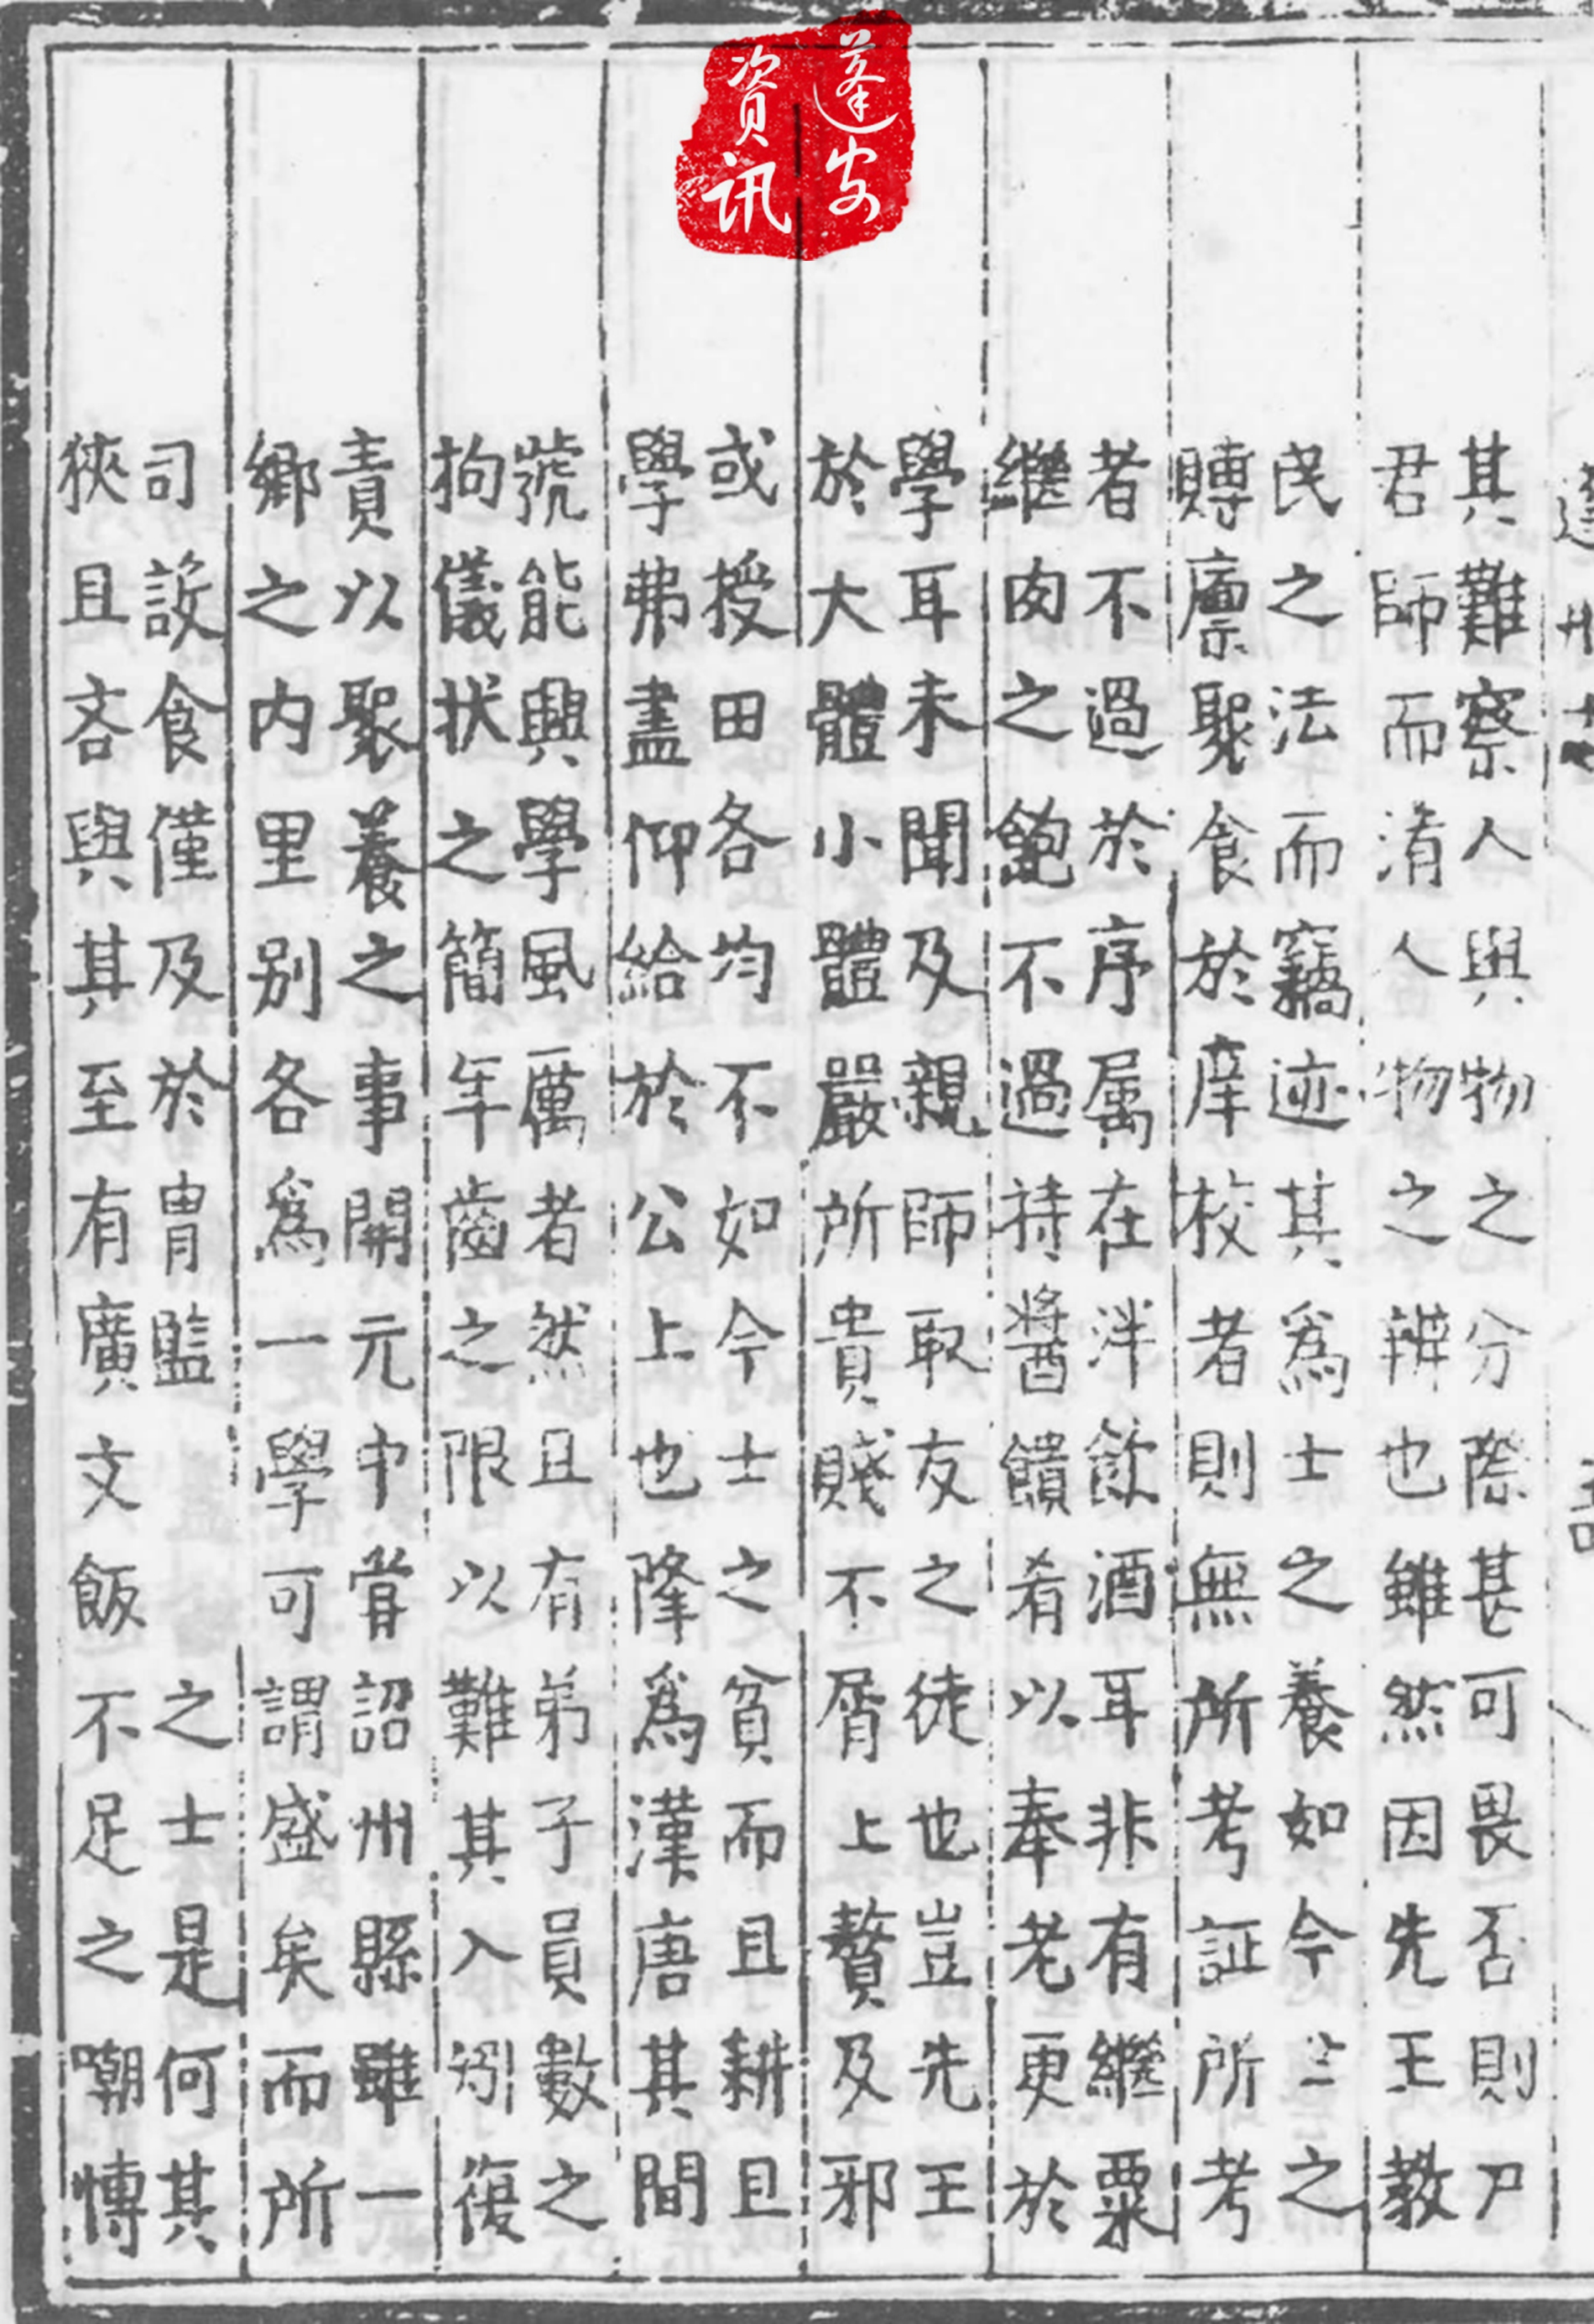 蓬安
資訊
其難察人與物之分際甚可畏否則尸
君師而淆人人物之辨也雖然因先王教
民之法而竊迹其爲士之養如今之
賻廪聚食於庠校者則無所考証所考
者不過於序属在泮飲酒耳非有繼粟
繼肉之飽不過持醬饋肴以奉老更於
學耳未聞及親師取友之徒也豈先王
於大體小體嚴所貴賤不屑上贅及邪
或授田各均不如今士之貧而且耕且
學弗盡仰給於公上也隆爲漢唐其間
號能興學風厲者然且有弟子員數之
拘儀狀之簡年齒之限以難其入矧復
責以聚養之事開元中甞詔州縣雖一
鄉之内里别各爲一學可謂盛矣而所
司設食僅及於胄監之士是何其
狹且吝與其至有廣文飯不足之嘲慱